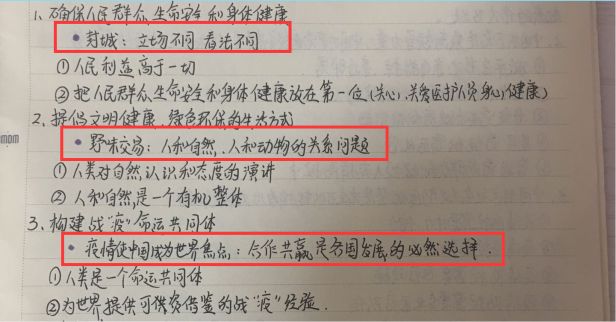 1、确保人民群众生命安全和身体健康
• 封城：立场不同 看法不同
①人民利益高于一切
②把人民群众生命安全和身体健康放在第一位(关心、关爱医护人员身心健康)
2、提倡文明健康、绿色环保的生活方式
• 野味交易：人和自然、人和动物的关系问题
①人类对自然认识和态度的演讲
②人和自然是一个有机整体
3、构建战"疫"命运共同体
• 疫情使中国成为世界焦点：合作共赢是各国发展的必然选择.
①人类是一个命运共同体
②为世界提供可供资借鉴的战"疫"经验.